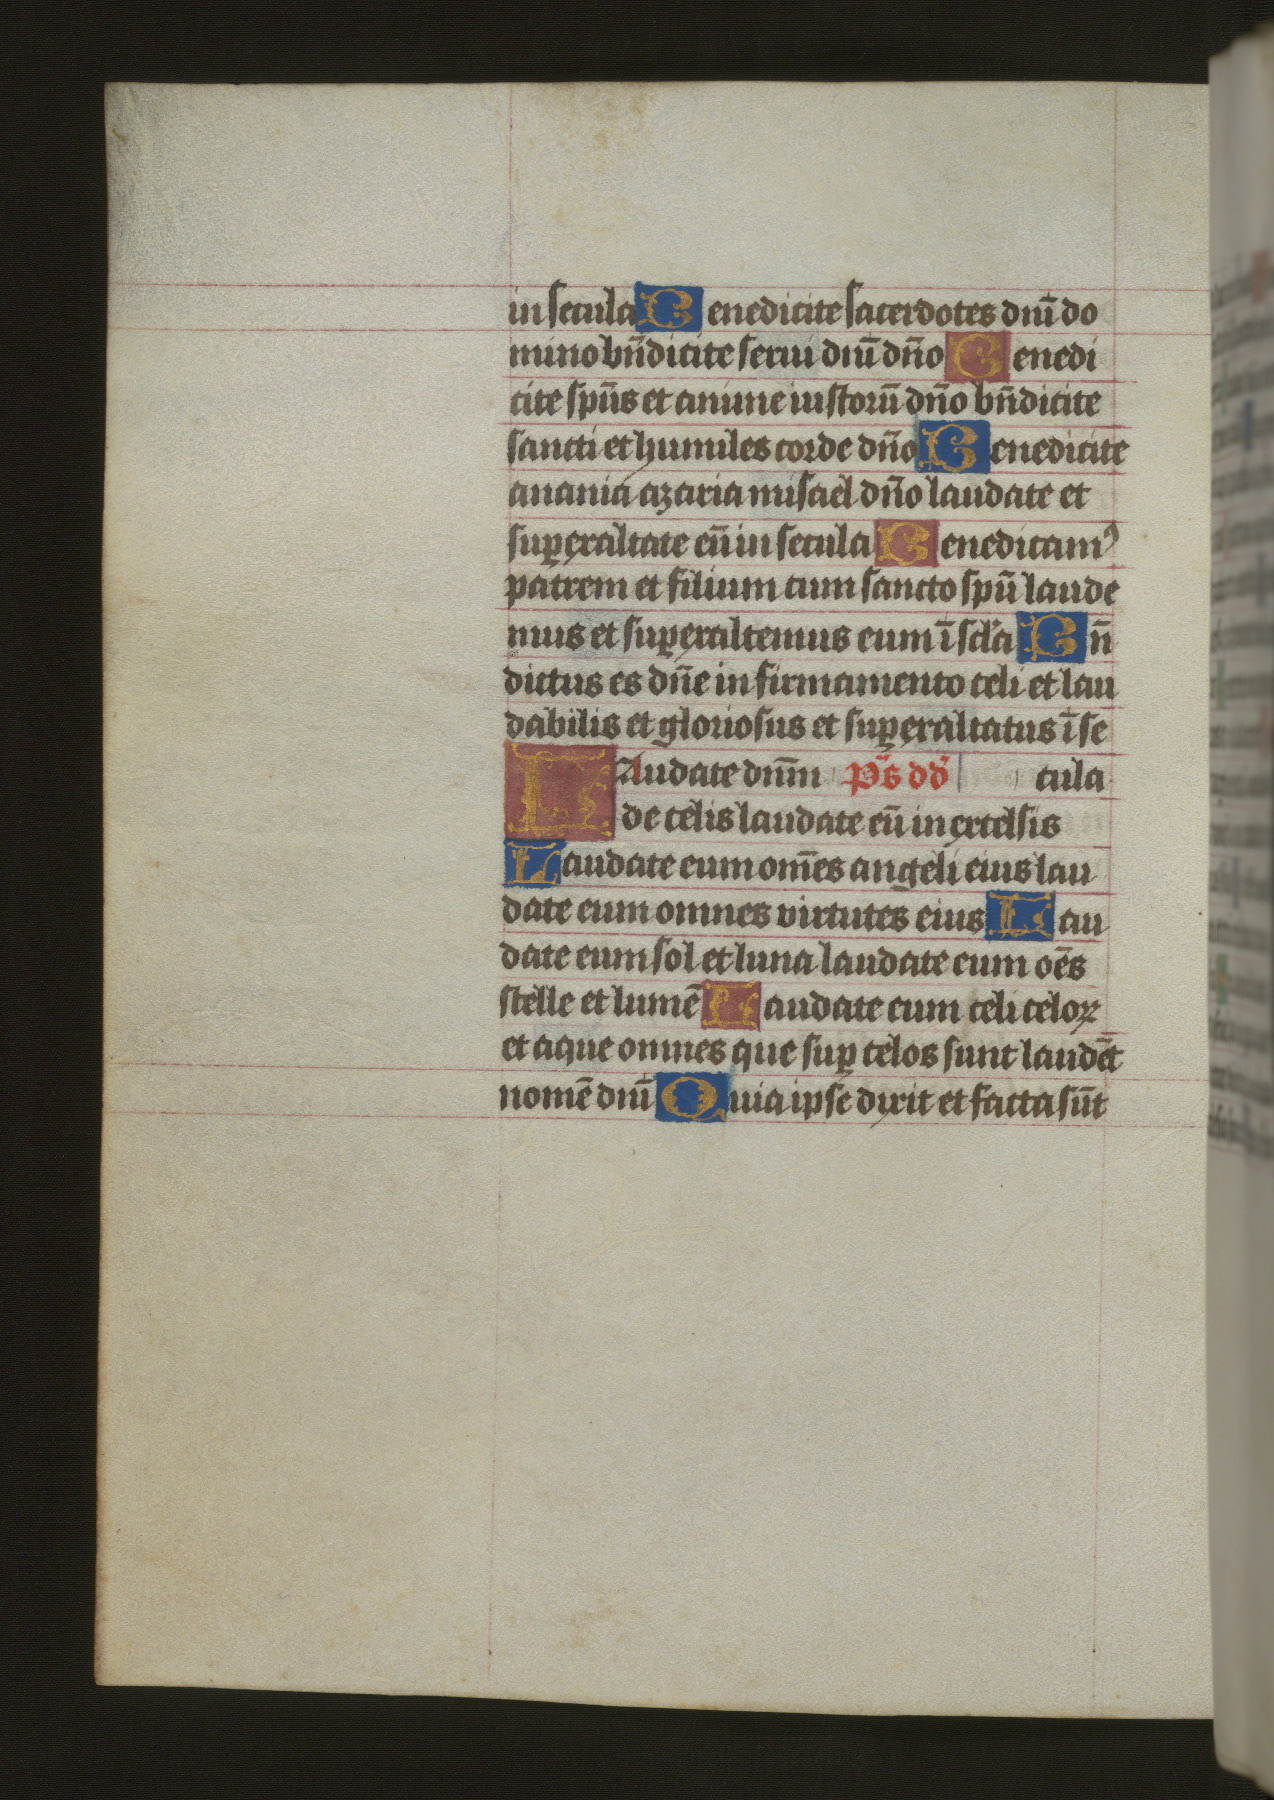 in secula Benedicite sacerdotes dnī do
mino bn̄dicite serui dnī dn̄o Benedi
cite spūs et anime iustorū dn̄o bn̄dicite
sancti et humiles corde dn̄o Benedicite
anania azaria misael dn̄o laudate et
suꝑexaltate eū in secula Benedicamꝰ
patrem et filium cum sancto spū laude
mus et suꝑexaltemus eum ī scl̄a Bn̄
dictus es dn̄e in firmamento celi et lau
dabilis et gloriosus et suꝑexaltatus ī se
LAudate dnm̄ p̄s dd̄ cula
de celis laudate eū in excelsis
Laudate eum om̄es angeli eius lau
date eum omnes virtutes eius Lau
date eum sol et luna laudate eum oēs
stelle et lumē Laudate eum celi celoꝝ
et aque omnes que suꝑ celos sunt laudēt
nomē dnī Quia ipse dixit et facta sūt